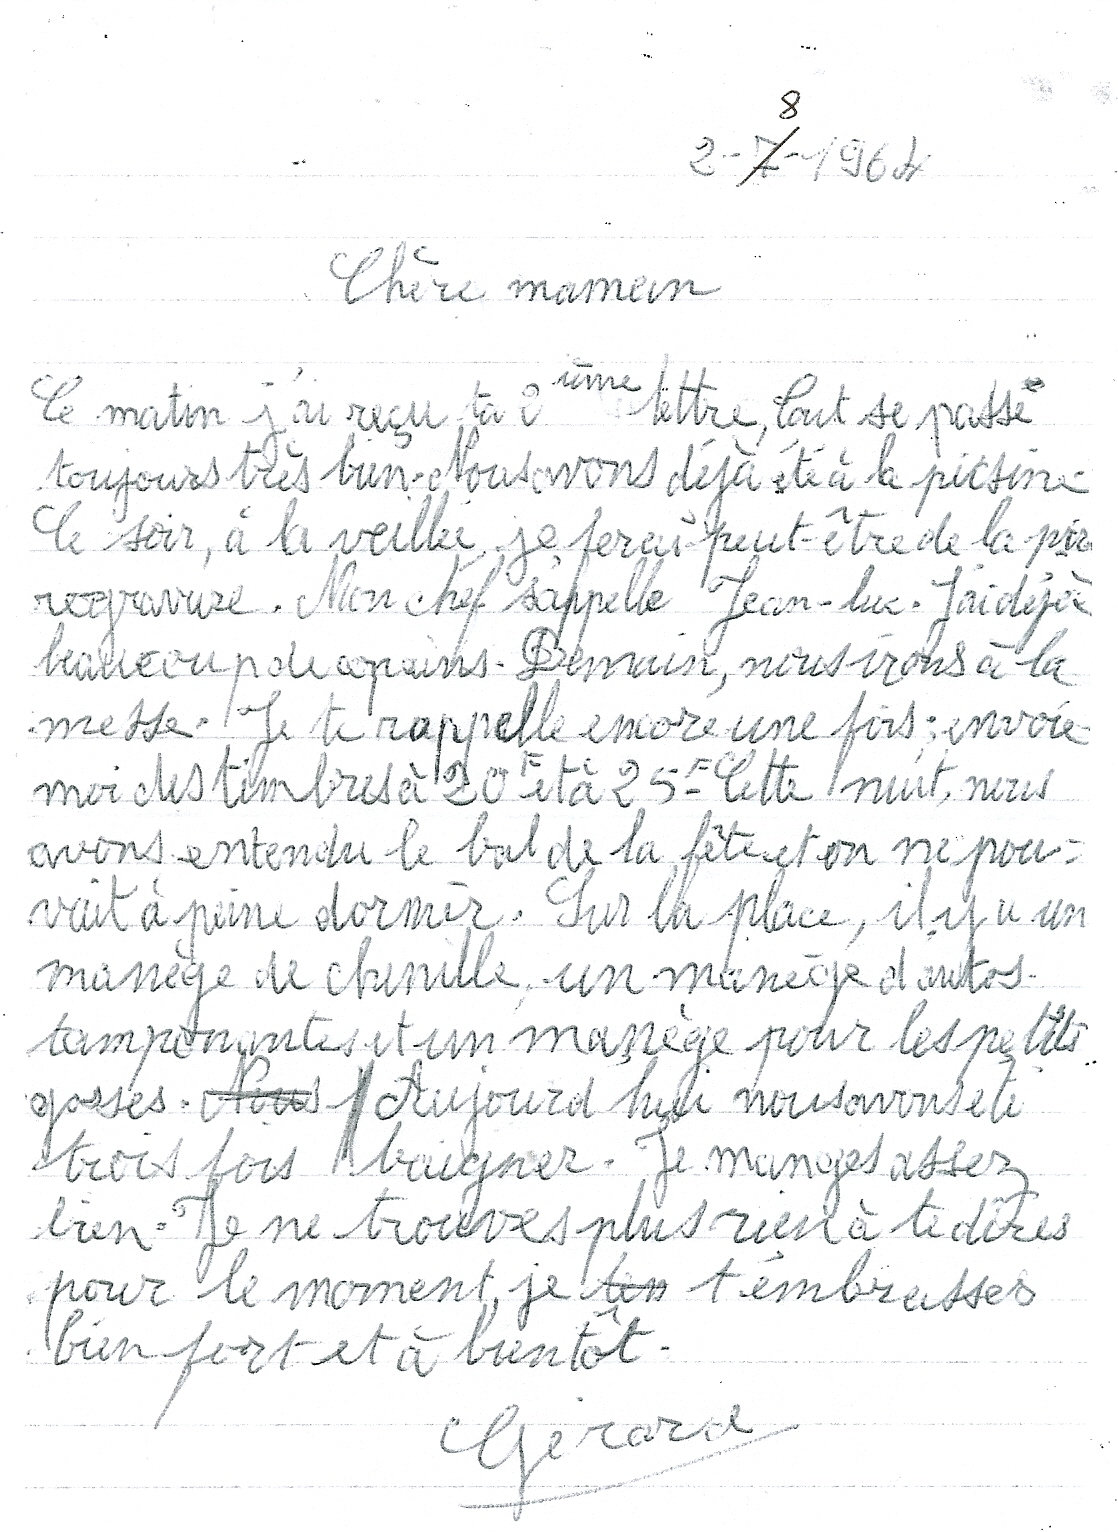 2-7-1964
8
Chère maman
Ce matin j'ai reçu ta 2ième lettre, tout se passe
toujours très bien. Nous avons déjà été à la picsine
Ce soir, à la veillée, je ferai peut-être de la pir
rogravure. Mon chef s'appelle Jean-luc. J'ai déjà
beaucoup de copains. Demain, nous irons à la
messe. Je te rappelle encore une fois; envoie
moi des timbres à 20F et à 25F Cette nuit, nous
avons entendu le bal de la fête et on ne pou=
vait à peine dormir. Sur la place, il y a un
manège de chenille, un manège d'autos-
tamponantes et un manège pour les petits
gosses. Nous Aujourd'hui nous avons été
trois fois baigner. Je manges assez
bien. Je ne trouves plus rien à te dires
pour le moment, je ten t'embrasses
bien fort et à bientôt.
Gérard